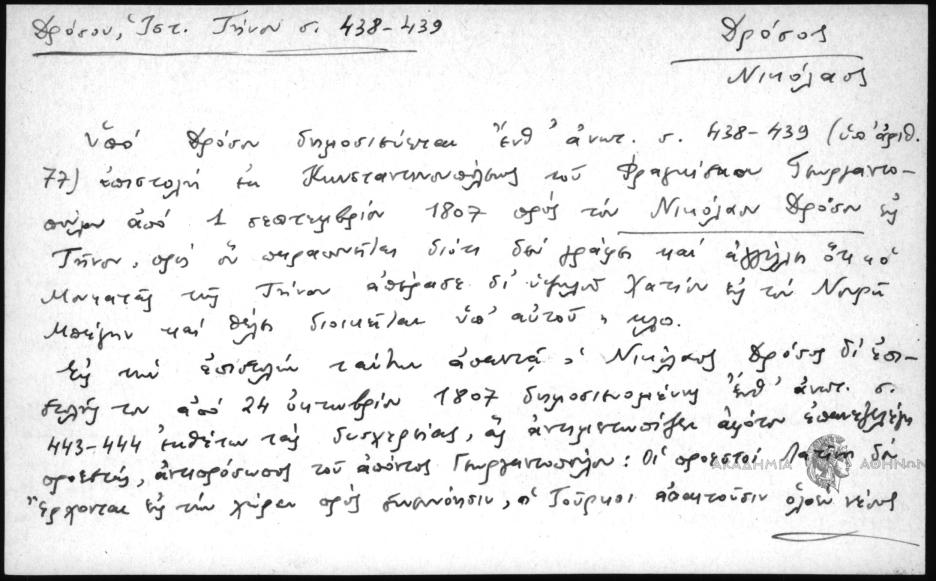 Δρόσου, Ἱστ. Τήνου σ. 438-439
Δρόσος
Νικόλαος
Ὑπό Δρόσου δημοσιεύεται ἔνθ' ἀνωτ. σ. 438-439 (ὑπ' ἀριθ.
77) ἐπιστολή ἐκ Κωνσταντινουπόλεως τοῦ Φραγκίσκου Γεωργαντο-
πούλου ἀπό 1 σεπτεμβρίου 1807 πρός τόν Νικόλαον Δρόσον εἰς
Τῆνον, πρός ὅν παραπονεῖται διότι δέν γράφει καί ἀγγέλλει ὅτι ὁ
Μουκατᾶς τῆς Τήνου ἀπέρασε δι' ὑψηλοῦ Χατίου εἰς τόν Νουρῆ
Μπέγην καί θέλει διοικεῖται ὑπ' αὐτοῦ, κλπ.
Εἰς τήν ἐπιστολήν ταύτην ἀπαντᾷ ὁ Νικόλαος Δρόσος δι' ἐπι-
στολῆς του ἀπό 24 ὀκτωβρίου 1807 δημοσιευομένης ἔνθ' ἀνωτ. σ.
443-444 ἐκθέτων τάς δυσχερείας, ἅς ἀντιμετωπίζει
προεστής, ἀντιπρόσωπος τοῦ ἀπόντος Γεωργαντοπούλου: Οἱ προεστοί Λατῖνοι δέν
ἔρχονται εἰς τήν χώραν πρός συνεννόησιν, οἱ Τοῦρκοι ἀπαιτοῦσιν ὁλοέν νέους
ΑΚΑΔΗΜΙΑ ΑΘΗΝΩΝ